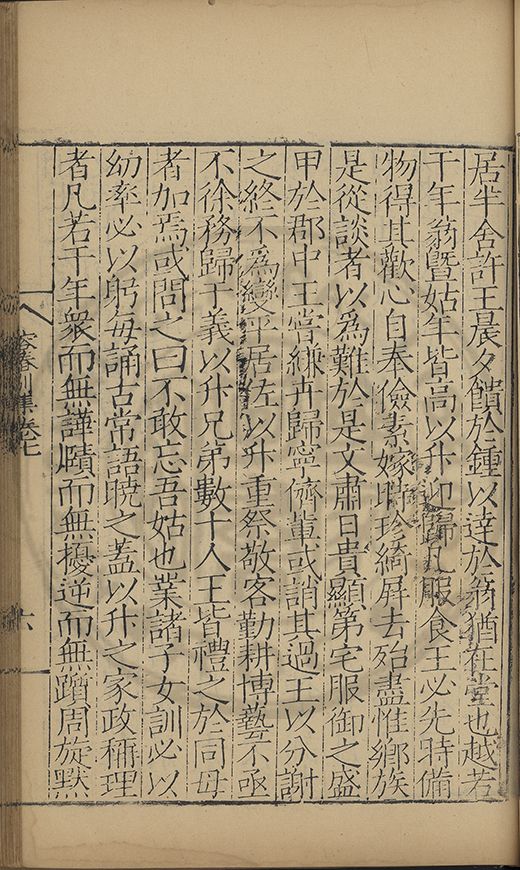 居半舍許王晨夕饋於鍾以達於翁猶在堂也越若
干年翁暨姑年皆高以升迎歸凡服食王必先時備
物得其歡心自奉儉素嫁時珍綺屏去殆盡惟鄉族
是從談者以爲難於是文肅日貴顯第宅服御之盛
甲於郡中王嘗縑卉歸寧儕輩或誚其過王以分謝
之終不爲變平居佐以升重祭敬客勤耕博藝不亟
不徐務歸于義以升兄弟數十人王皆禮之於同母
者加焉或問之曰不敢忘吾姑也業諸子女訓必以
幼率必以躬每誦古常語曉之蓋以升之家政稱理
者凡若干年衆而無譁賾而無擾逆而無躓周旋默
卷七
六